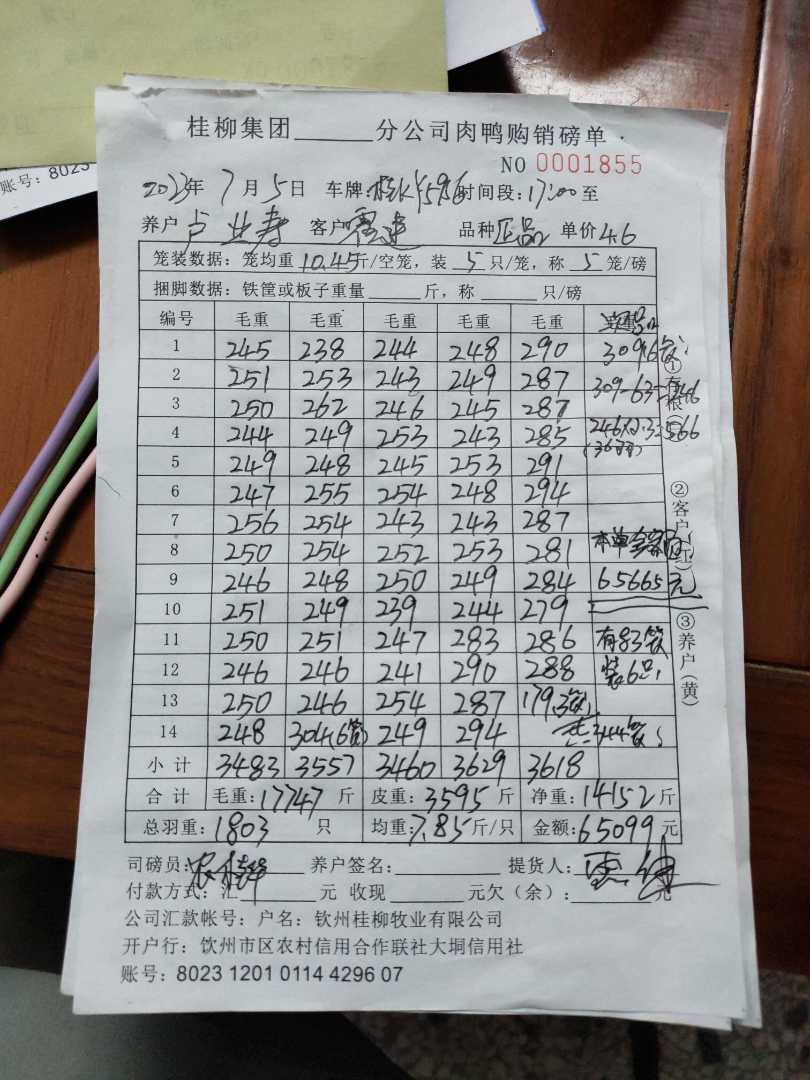 账号：8023
桂柳集团______分公司肉鸭购销磅单
NO 0001855
2023年 7月5日 车牌: 时间段：17:00至
养户 卢业寿 客户 品种 正品 单价 4.6
笼装数据：笼均重 10.45斤/空笼，装 5 只/笼，称 5 笼/磅
捆脚数据：铁筐或板子重量______斤，称______只/磅
编号 毛重 毛重 毛重 毛重 毛重
1 245 238 244 248 290 309(6
2 251 253 243 249 287 309-63=246
3 250 262 246 245 287
4 244 249 253 243 285 246 566
5 249 248 245 253 291 (36羽)
6 247 255 254 248 294
7 256 254 243 243 287
8 250 254 252 253 281 本单金额
9 246 248 250 249 284 65665元
10 251 249 239 244 279
11 250 251 247 283 286 有83笼
12 246 246 241 290 288 装6只
13 250 246 254 287 179(3笼)
14 248 304(6笼) 249 294 共344笼
小计 3483 3557 3460 3629 3618
合计 毛重：17747斤 皮重：3595斤 净重：14152斤
总羽重：1803 只 均重：7.85斤/只 金额：65099元
①存根
②客户(红)
③养户(黄)
司磅员： 养户签名： 提货人：
付款方式：汇______元 收现______元欠（余）：______元
公司汇款帐号：户名：钦州桂柳牧业有限公司
开户行：钦州市区农村信用合作联社大垌信用社
账号：8023 1201 0114 4296 07